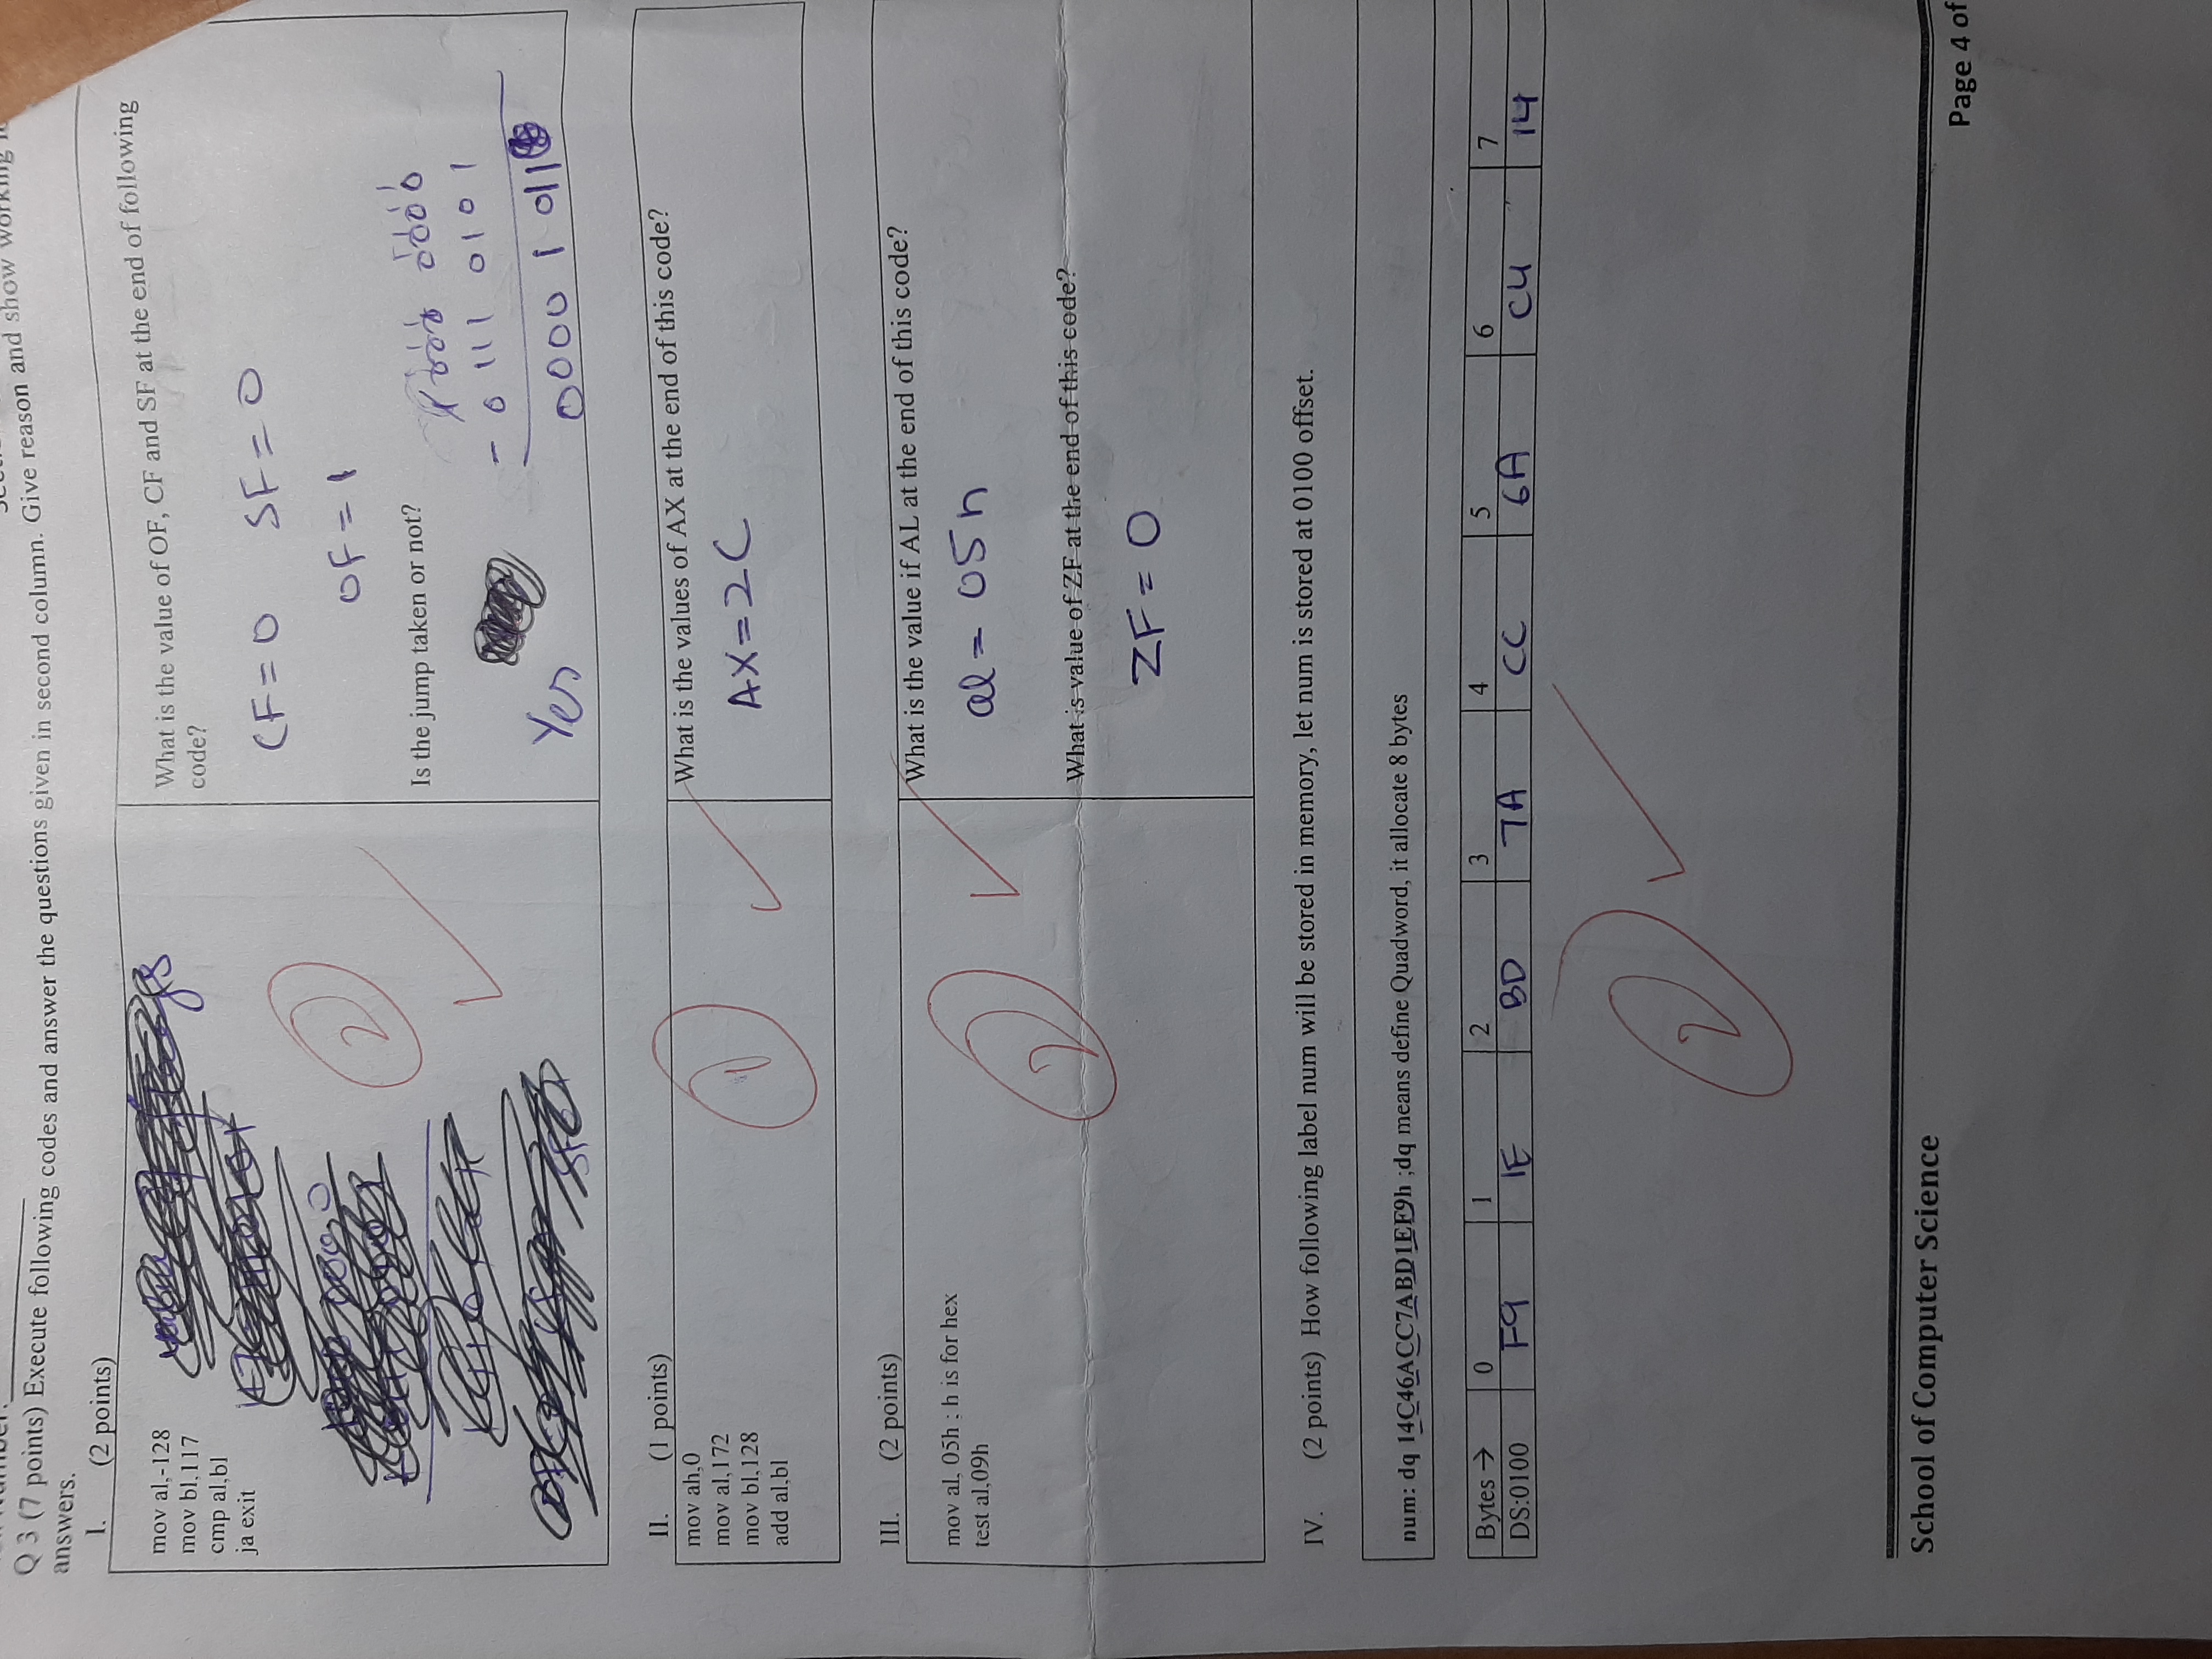 Q 3 (7 points) Execute following codes and answer the questions given in second column. Give reason and show working
answers.
I. (2 points)
mov al,-128
mov bl,117
cmp al,bl
ja exit
2
What is the value of OF, CF and SF at the end of following
code?
CF = 0 SF = 0
OF = 1
Is the jump taken or not?
Yes
- 0111 0101
0000 1011
II. (1 points)
mov ah,0
mov al,172
mov bl,128
add al,bl
1
What is the values of AX at the end of this code?
AX = 2C
III. (2 points)
mov al, 05h ; h is for hex
test al,09h
2
What is the value if AL at the end of this code?
al = 05h
What is value of ZF at the end of this code?
ZF = 0
IV. (2 points) How following label num will be stored in memory, let num is stored at 0100 offset.
num: dq 14C46ACC7ABD1EF9h ;dq means define Quadword, it allocate 8 bytes
Bytes → 0 1 2 3 4 5 6 7
DS:0100 F9 1E BD 7A CC 6A C4 14
2
School of Computer Science
Page 4 of